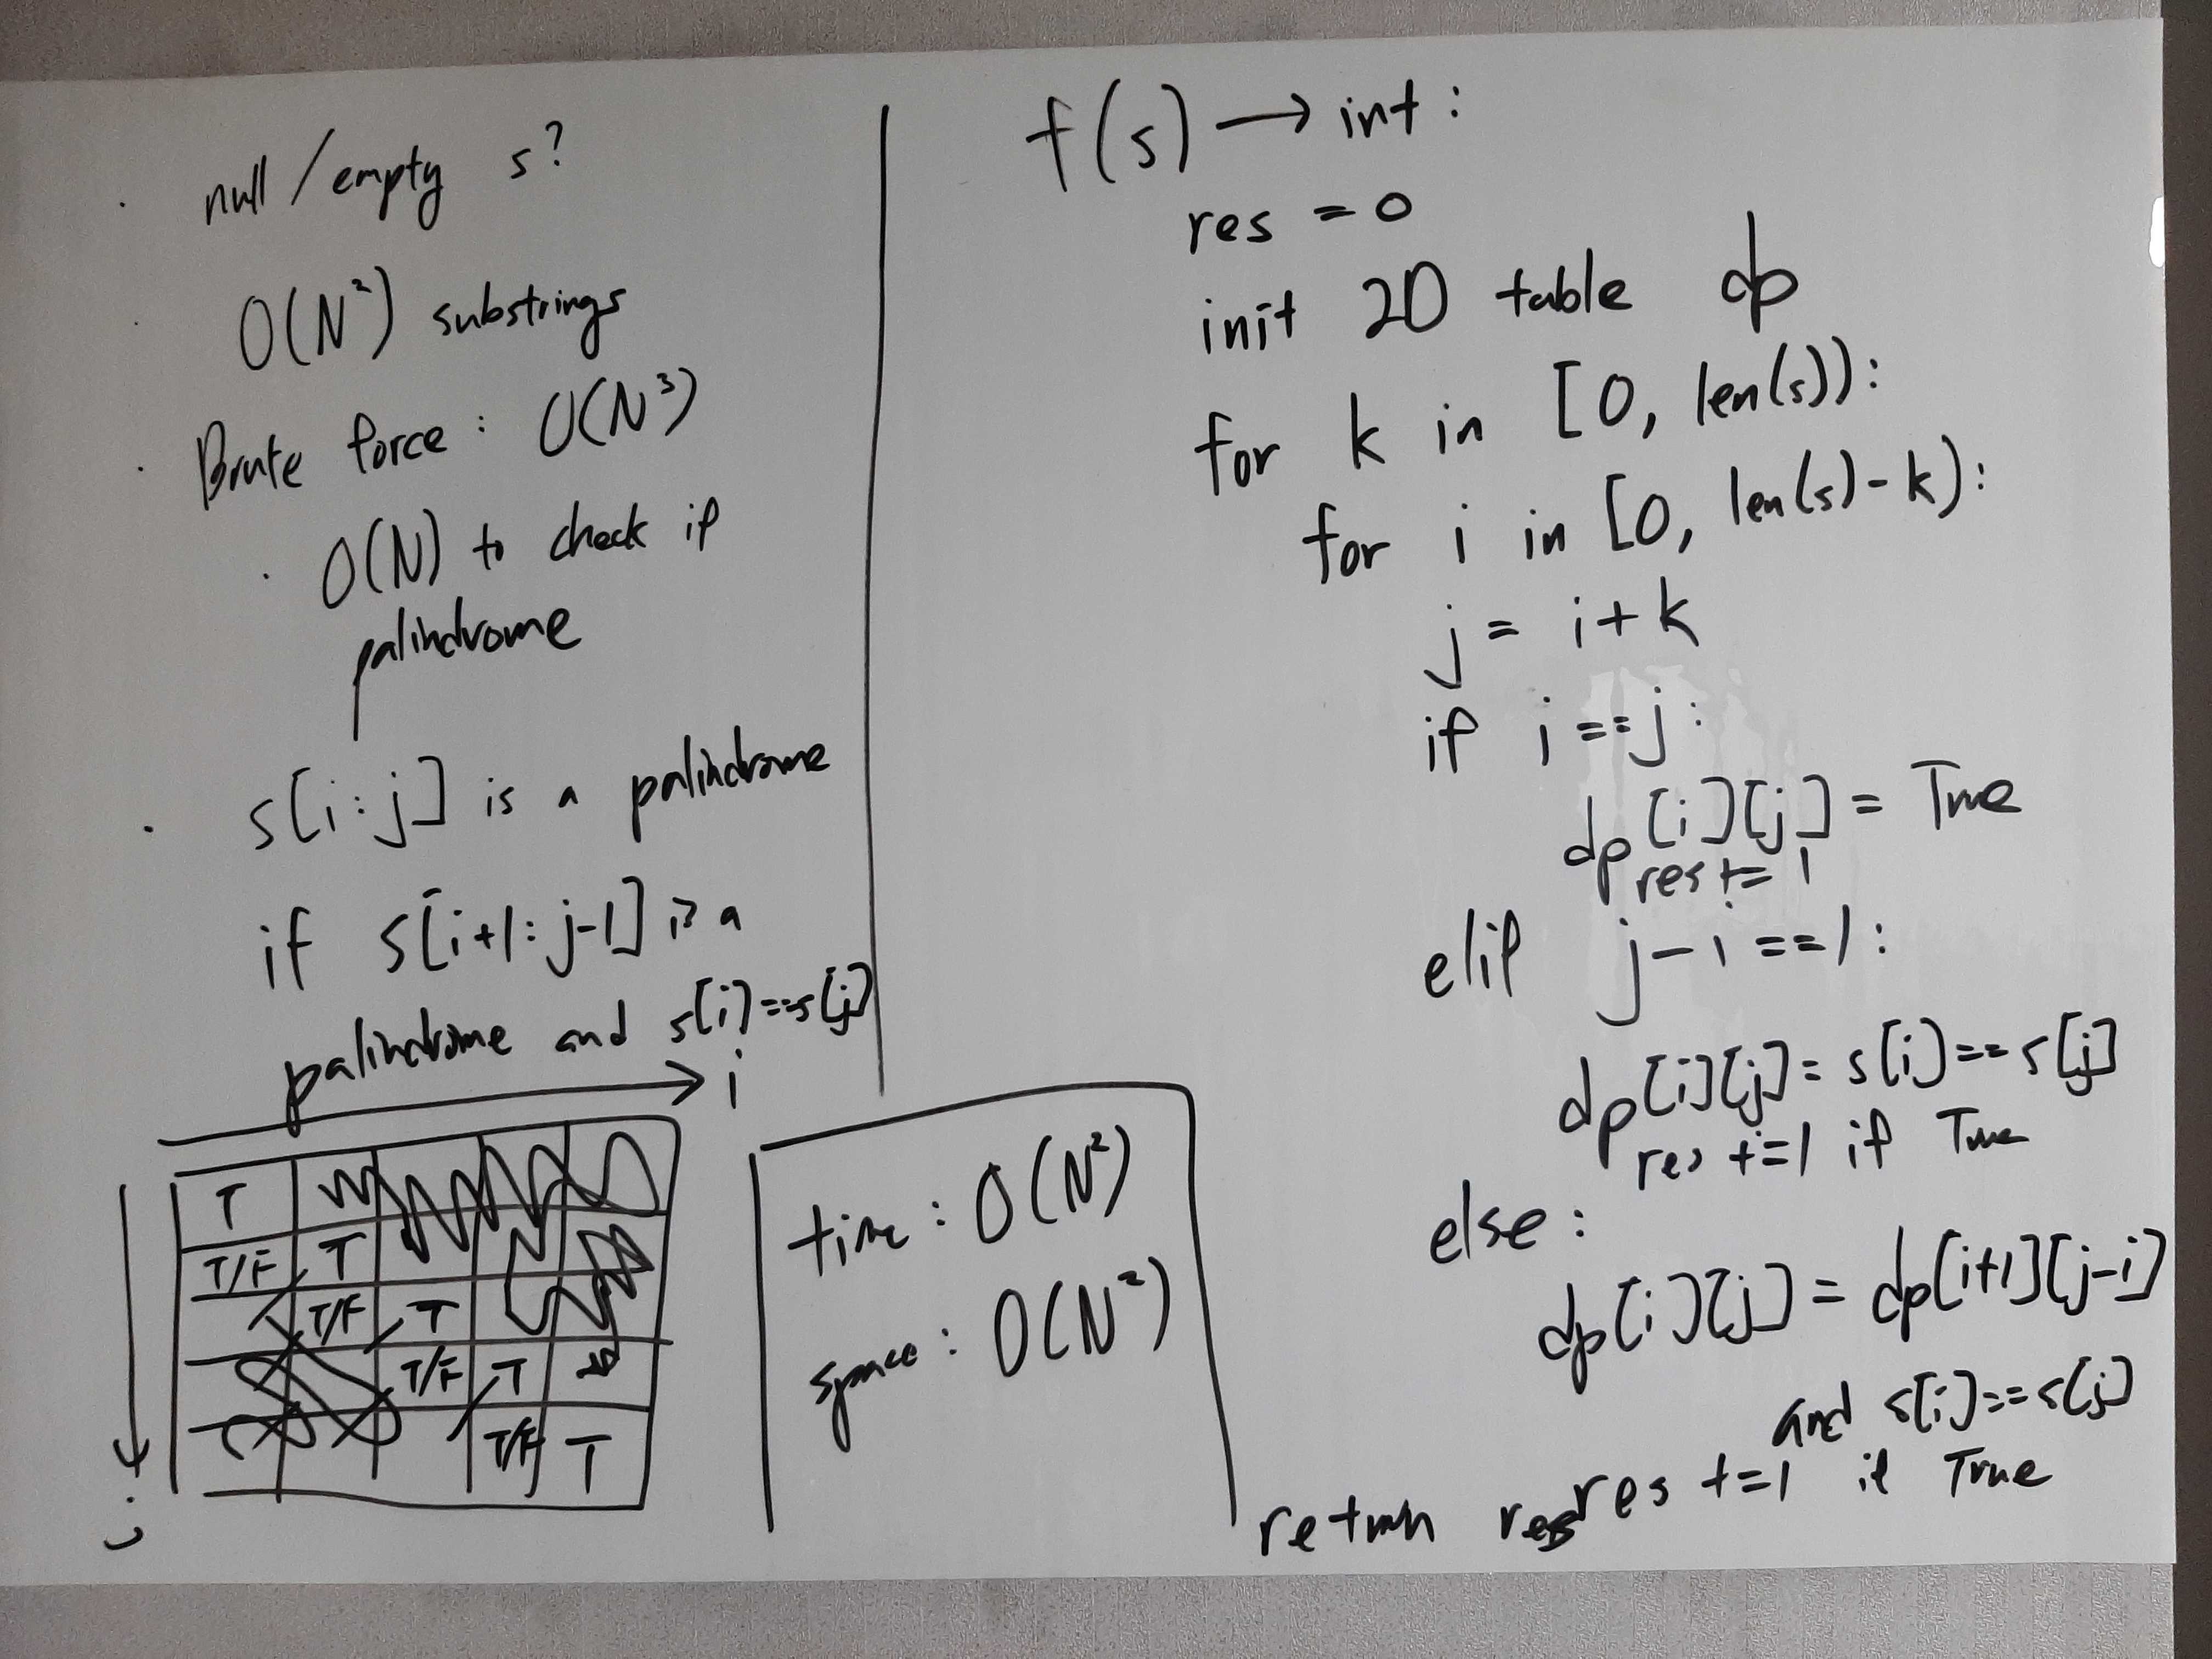 · null / empty s?
· O(N²) substrings
· Brute force : O(N³)
· O(N) to check if
palindrome
· s[i:j] is a palindrome
if s[i+1:j-1] is a
palindrome and s[i]==s[j]
i
T
T/F T
T/F T
T/F T
T/F T
j
time : O(N²)
space : O(N²)
f(s) → int :
res = 0
init 2D table dp
for k in [0, len(s)):
for i in [0, len(s)-k):
j = i+k
if i==j:
dp[i][j] = True
res += 1
elif j-i==1:
dp[i][j] = s[i]==s[j]
res +=1 if True
else :
dp[i][j] = dp[i+1][j-1]
and s[i]==s[j]
res +=1 if True
return res